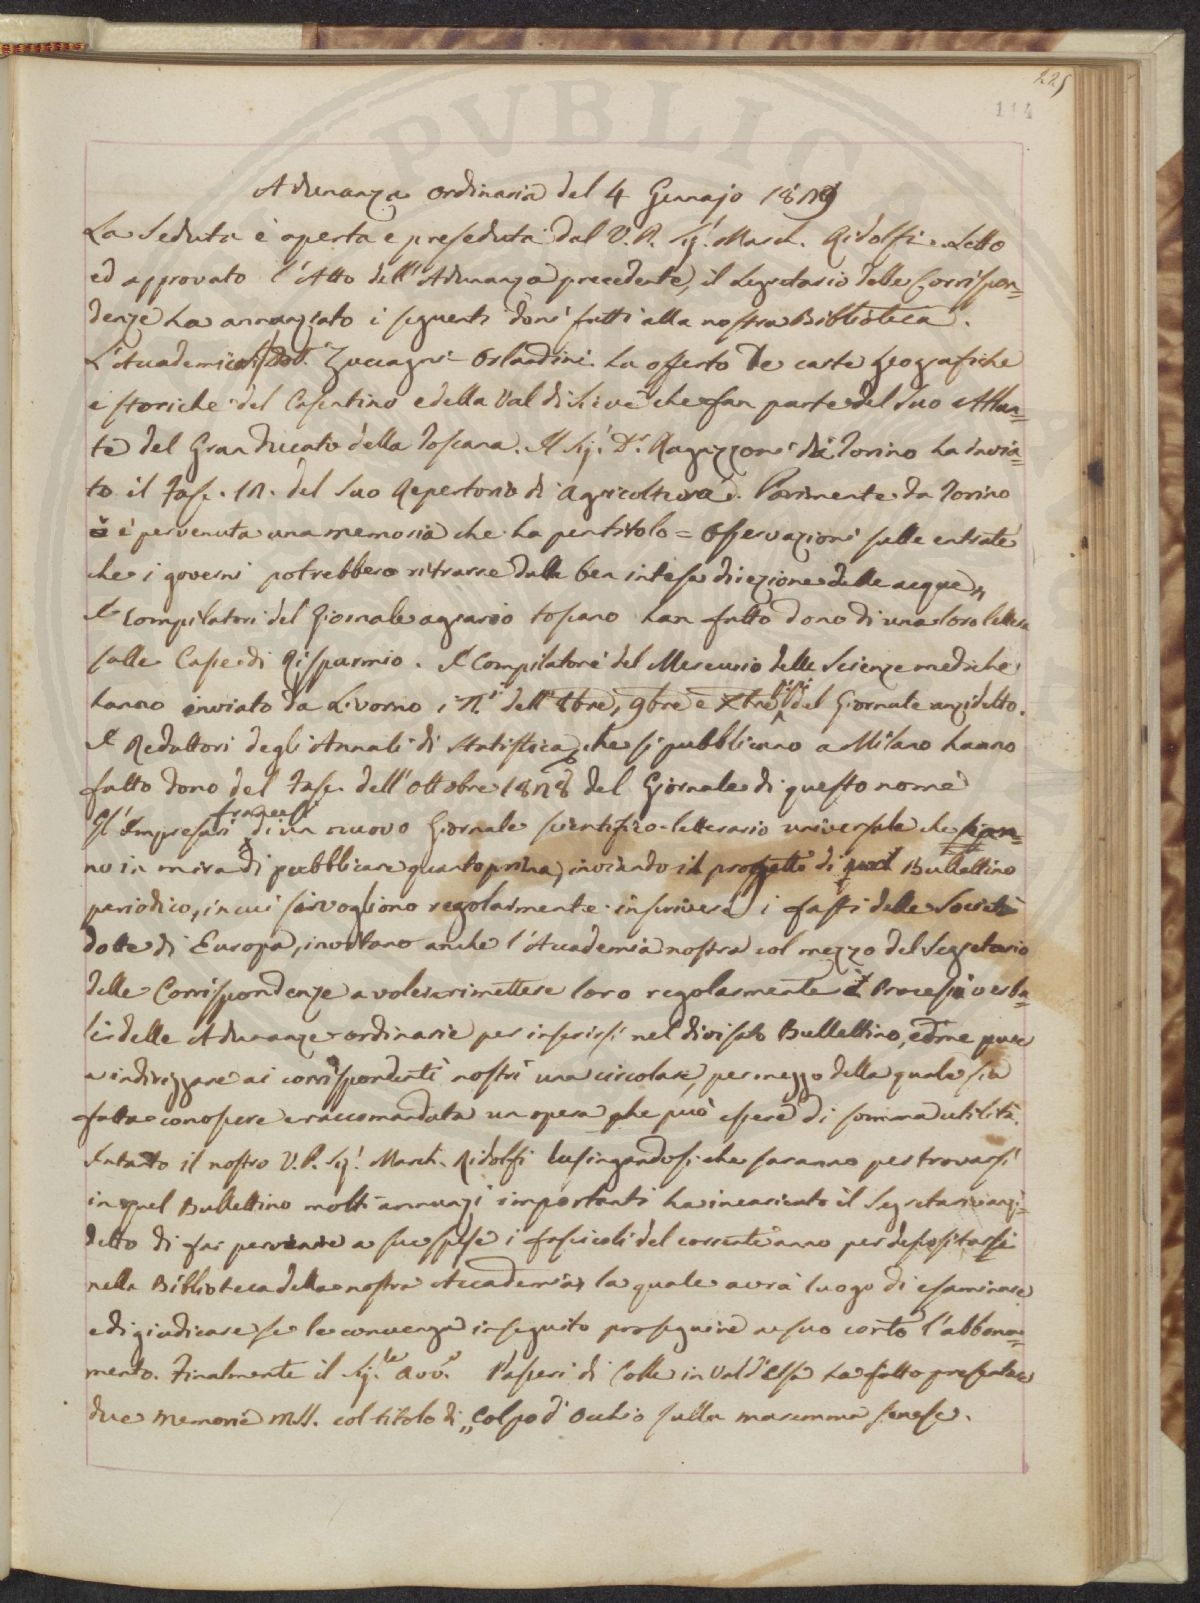 225
114
PVBLICA
Adunanza ordinaria del 4 Gennajo 1829
La Seduta è aperta e preseduta dal V. P. Sig.r March. Ridolfi. Letto
ed approvato l'Atto dell'Adunanza precedente, il Segretario delle Corrispon=
denze ha annunziato i seguenti doni fatti alla nostra Biblioteca.
L'Accademico Dott. Zuccagni Orlandini ha offerto le carte geografiche
e storiche del Casentino e della Val di Sieve che fan parte del suo Atlan=
te del Gran Ducato della Toscana. Il Sig. Dr. Ragazzoni di Torino ha invia=
to il Fasc. 12. del suo Repertorio di agricoltura. Parimente da Torino
è pervenuta una memoria che ha per titolo = Osservazioni sulle entrate
che i governi potrebbero ritrarre dalla ben intesa direzione delle acque „
I Compilatori del Giornale agrario toscano han fatto dono di una loro lettera
sulle Casse di Risparmio. I Compilatori del Mercurio delle Scienze mediche
hanno inviato da Livorno i N.i dell'8bre, 9bre e Xbre del Giornale anzidetto.
I Redattori degli Annali di Statistica che si pubblicano a Milano hanno
fatto dono del Fasc. dell'ottobre 1828 del Giornale di questo nome
Gl'Impresari francesi di un nuovo Giornale scientifico-letterario universale che
no in mira di pubblicare quanto prima, inviando il progetto di Bullettino
periodico, in cui si vogliono regolarmente inserivere i fasti delle Società
dotte di Europa, invitano anche l'Accademia nostra col mezzo del Segretario
delle Corrispondenze a voler rimettere loro regolarmente i Processi verba=
li delle Adunanze ordinarie per inserirsi nel divisato Bullettino, come pure
a indirizzare ai corrispondenti nostri una circolare, per mezzo della quale sia
fatta conoscere e raccomandata un opera che può essere di somma utilità.
Intanto il nostro V. P. Sig.r March. Ridolfi lusingandosi che saranno per trovarsi
in quel Bullettino molti annunzi importanti ha incaricato il Segretario anzi=
detto di far pervenire a sue spese i fascicoli del corrente anno per depositarsi
nella Biblioteca della nostra Accademia, la quale avrà luogo di esaminare
e di giudicare se le convenga in seguito proseguire a suo conto l'abbona=
mento. Finalmente il Sig.re Avv.o Passeri di Colle in Val d'Elsa ha fatto presentare
due memorie mss. col titolo di „ Colpo d'occhio sulla maremma senese.